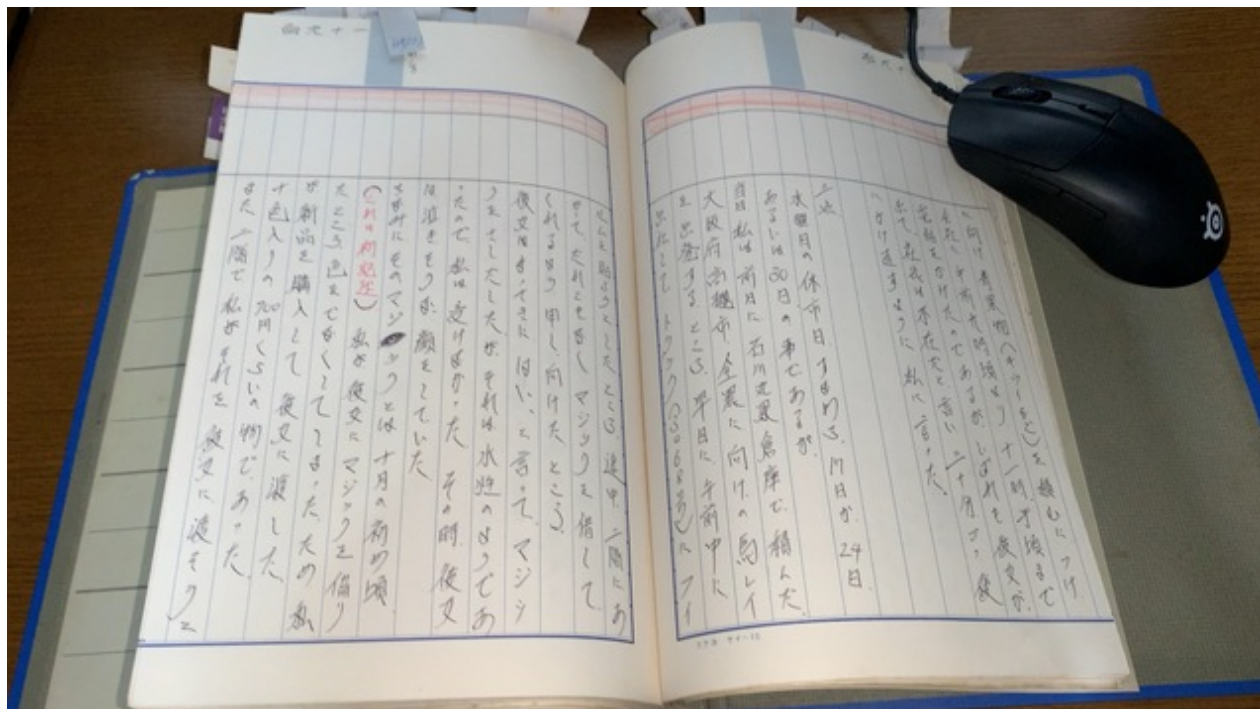 に向け、青果物(キャベツなど)を積むにつけ
会社に午前九時頃より十一時半頃まで
電話をかけたのであるが、しばれも彼女が
出て、社長は不在だと言い、二十分ごと後
にかけ直すように私に言った。
二点
水曜日の休市日、すなわち、17日か、24日
あるいは30日の事であるが、
当日私は前日に石川定温倉庫で積んだ
大阪府高槻市、全農に向けの馬レイ
を出発するところ、早目に午前中に
出社してトラック(3068号)にフイ
ルムを貼ろうとしたところ、途中、二階にあ
がって、だれともなくマジックを借して
くれるよう申し向けたところ、
彼女はすぐさまに「はい、と言って、マジッ
クをさしだしたが、それは水性のようであ
ったので、私は受けなかった。その時、彼女
は泣きそうな顔をしていた
ちなみにそのマジックとは十月の初め頃、
(これは初犯性)私が彼女にマジックを借り
たところ色をでなくしてしまったため私
が新品を購入して彼女に渡した
十色入りの700円くらいの物であった。
また、二階で私がそれを彼女に渡そうと